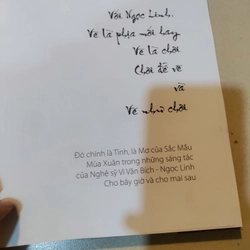 Với Ngọc Linh.
Vẽ là phịa nối hay
Vẽ là chơi
Chơi để vẽ
và
Vẽ như chơi
Đó chính là Tình, là Mơ của Sắc Mầu
Mùa Xuân trong những sáng tác
của Nghệ sỹ Vi Văn Bích - Ngọc Linh
Cho bây giờ và cho mai sau